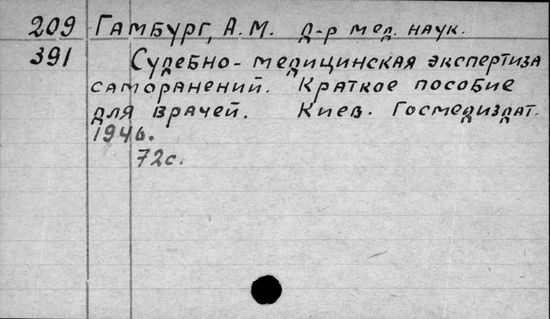 209 Гамбург, А.М. д-р мед. наук.
391 Судебно-медицинская экспертиза
саморанений. Краткое пособие
для врачей. Киев. Госмедиздат.
1946.
72с.